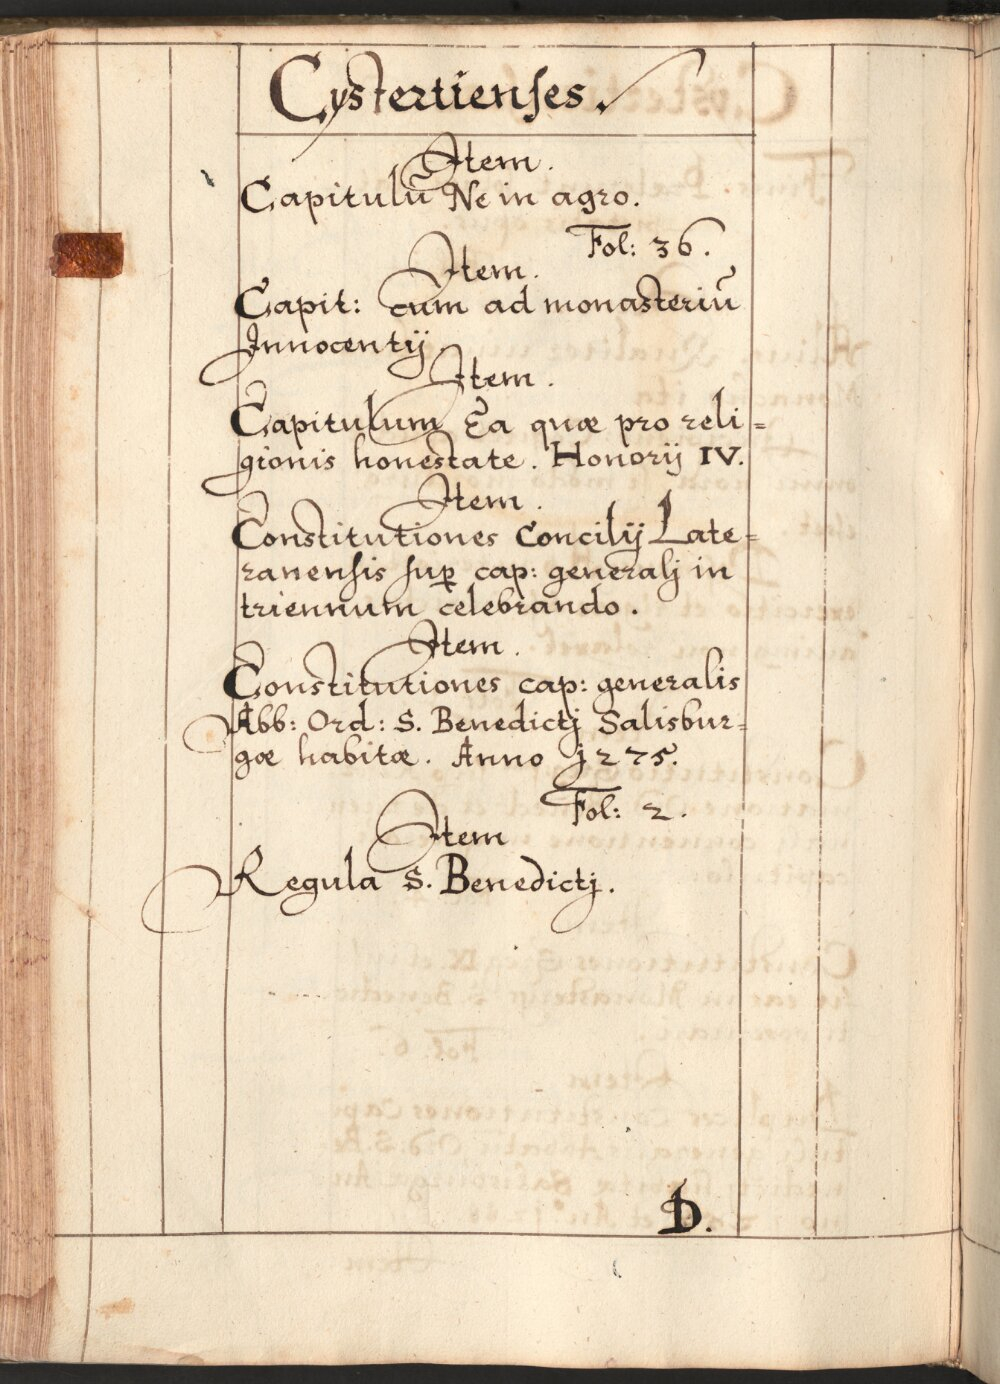 Cystertienses.
Item.
Capitulũ Ne in agro.
Fol: 36.
Item.
Capit: cum ad monasteriũ
Innocentij
Item.
Capitulum Ea quæ pro reli=
gionis honestate. Honorij IV.
Item.
Constitutiones Concilij Late=
ranensis sup cap: generalj in
triennum celebrando.
Item.
Constitutiones cap: generalis
Abb: Ord: S. Benedictj Salisbur=
gæ habitæ. Anno 1275.
Fol: 2.
Item
Regula S. Benedictj.
D.